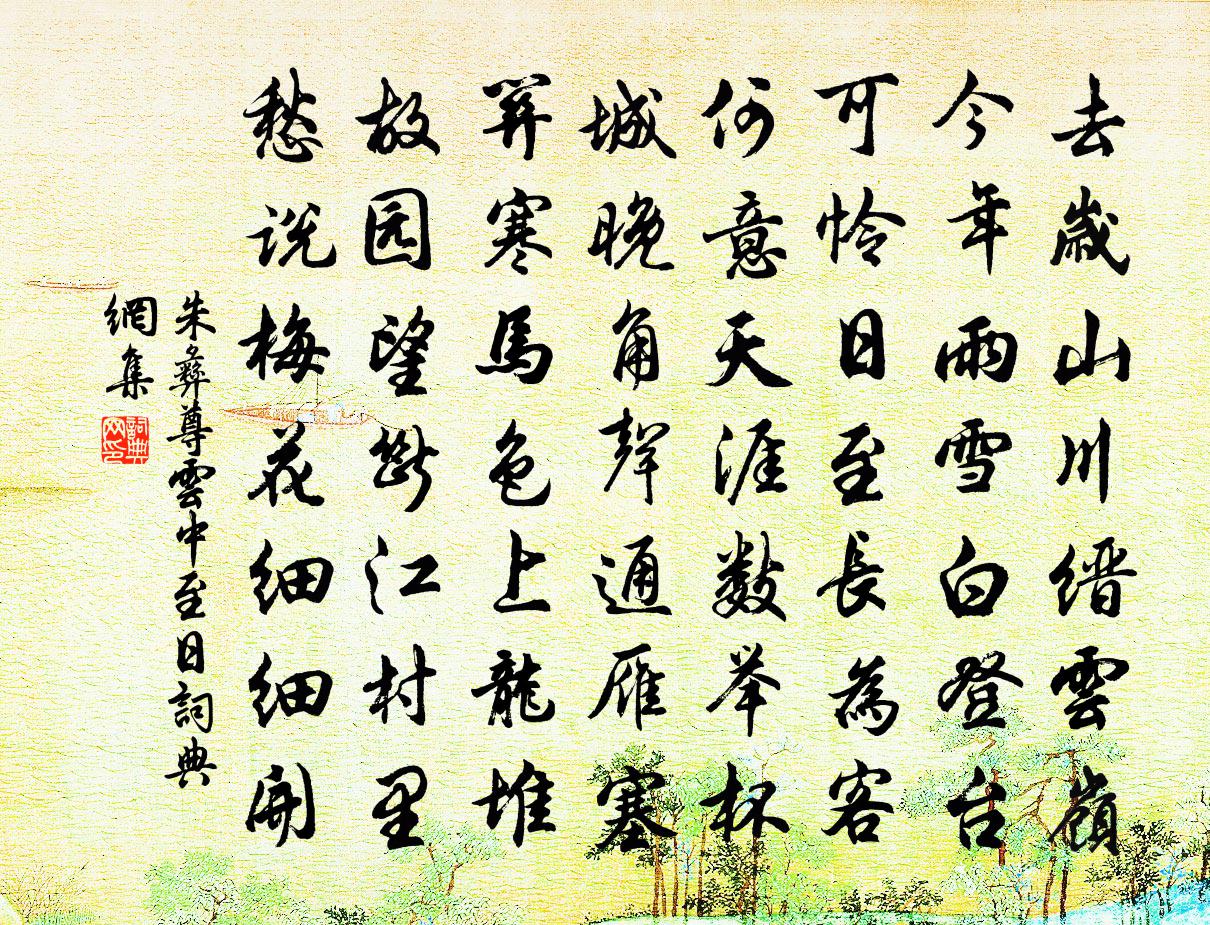 去歲山川缙雲嶺
今年雨雪白登台
可怜日至長為客
何意天涯數举杯
城晚角聲通雁塞
關寒馬色上龍堆
故园望斷江村里
愁说梅花细细開
朱彝尊雲中至日詞典
網集
詞典
网印